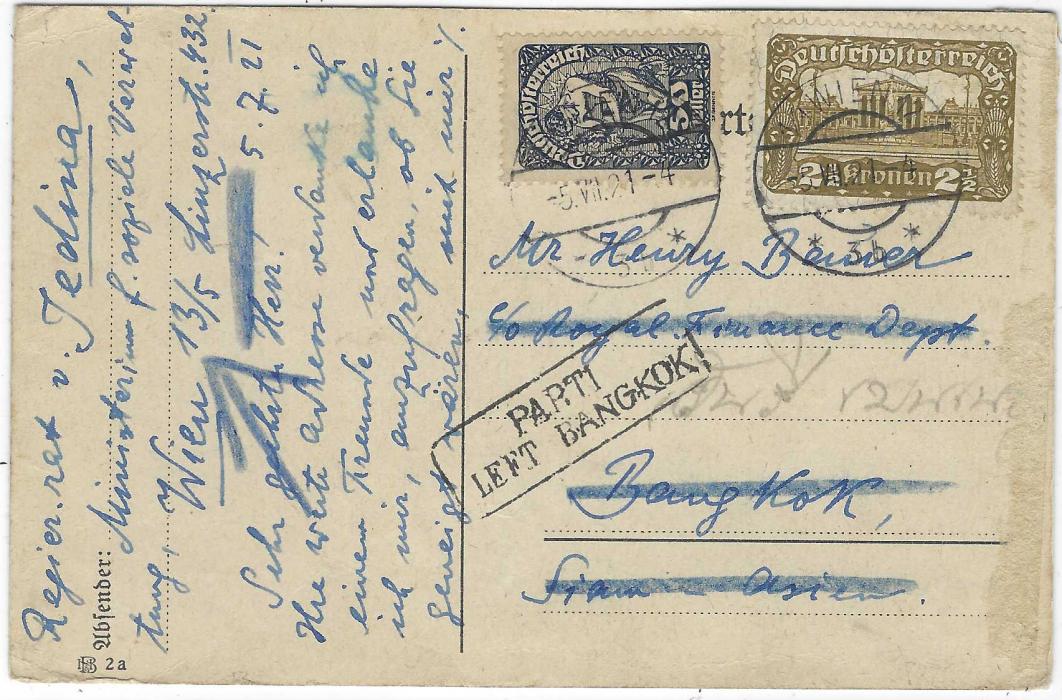 Regier.rat v. Jedina,
Absender: Ministerium f. soziale Verwal-
tung, Wien 13/5 Linzerstr. 432
5.7.21
Sehr geehrter Herr!
Ihre werte Adresse verdanke ich
einem Freunde und erlaube
ich mir, anzufragen, ob Sie
geneigt wären, mit mir
HB 2a
Deutschösterreich
Deutschösterreich
2½ Kronen 2½
WIEN
-5.VII.21-4
-5.VII.21-4
* 3b *
Mr. Henry
c/o Royal Finance Dept.
PARTI
LEFT BANGKOK
Bangkok,
Siam - Asien.